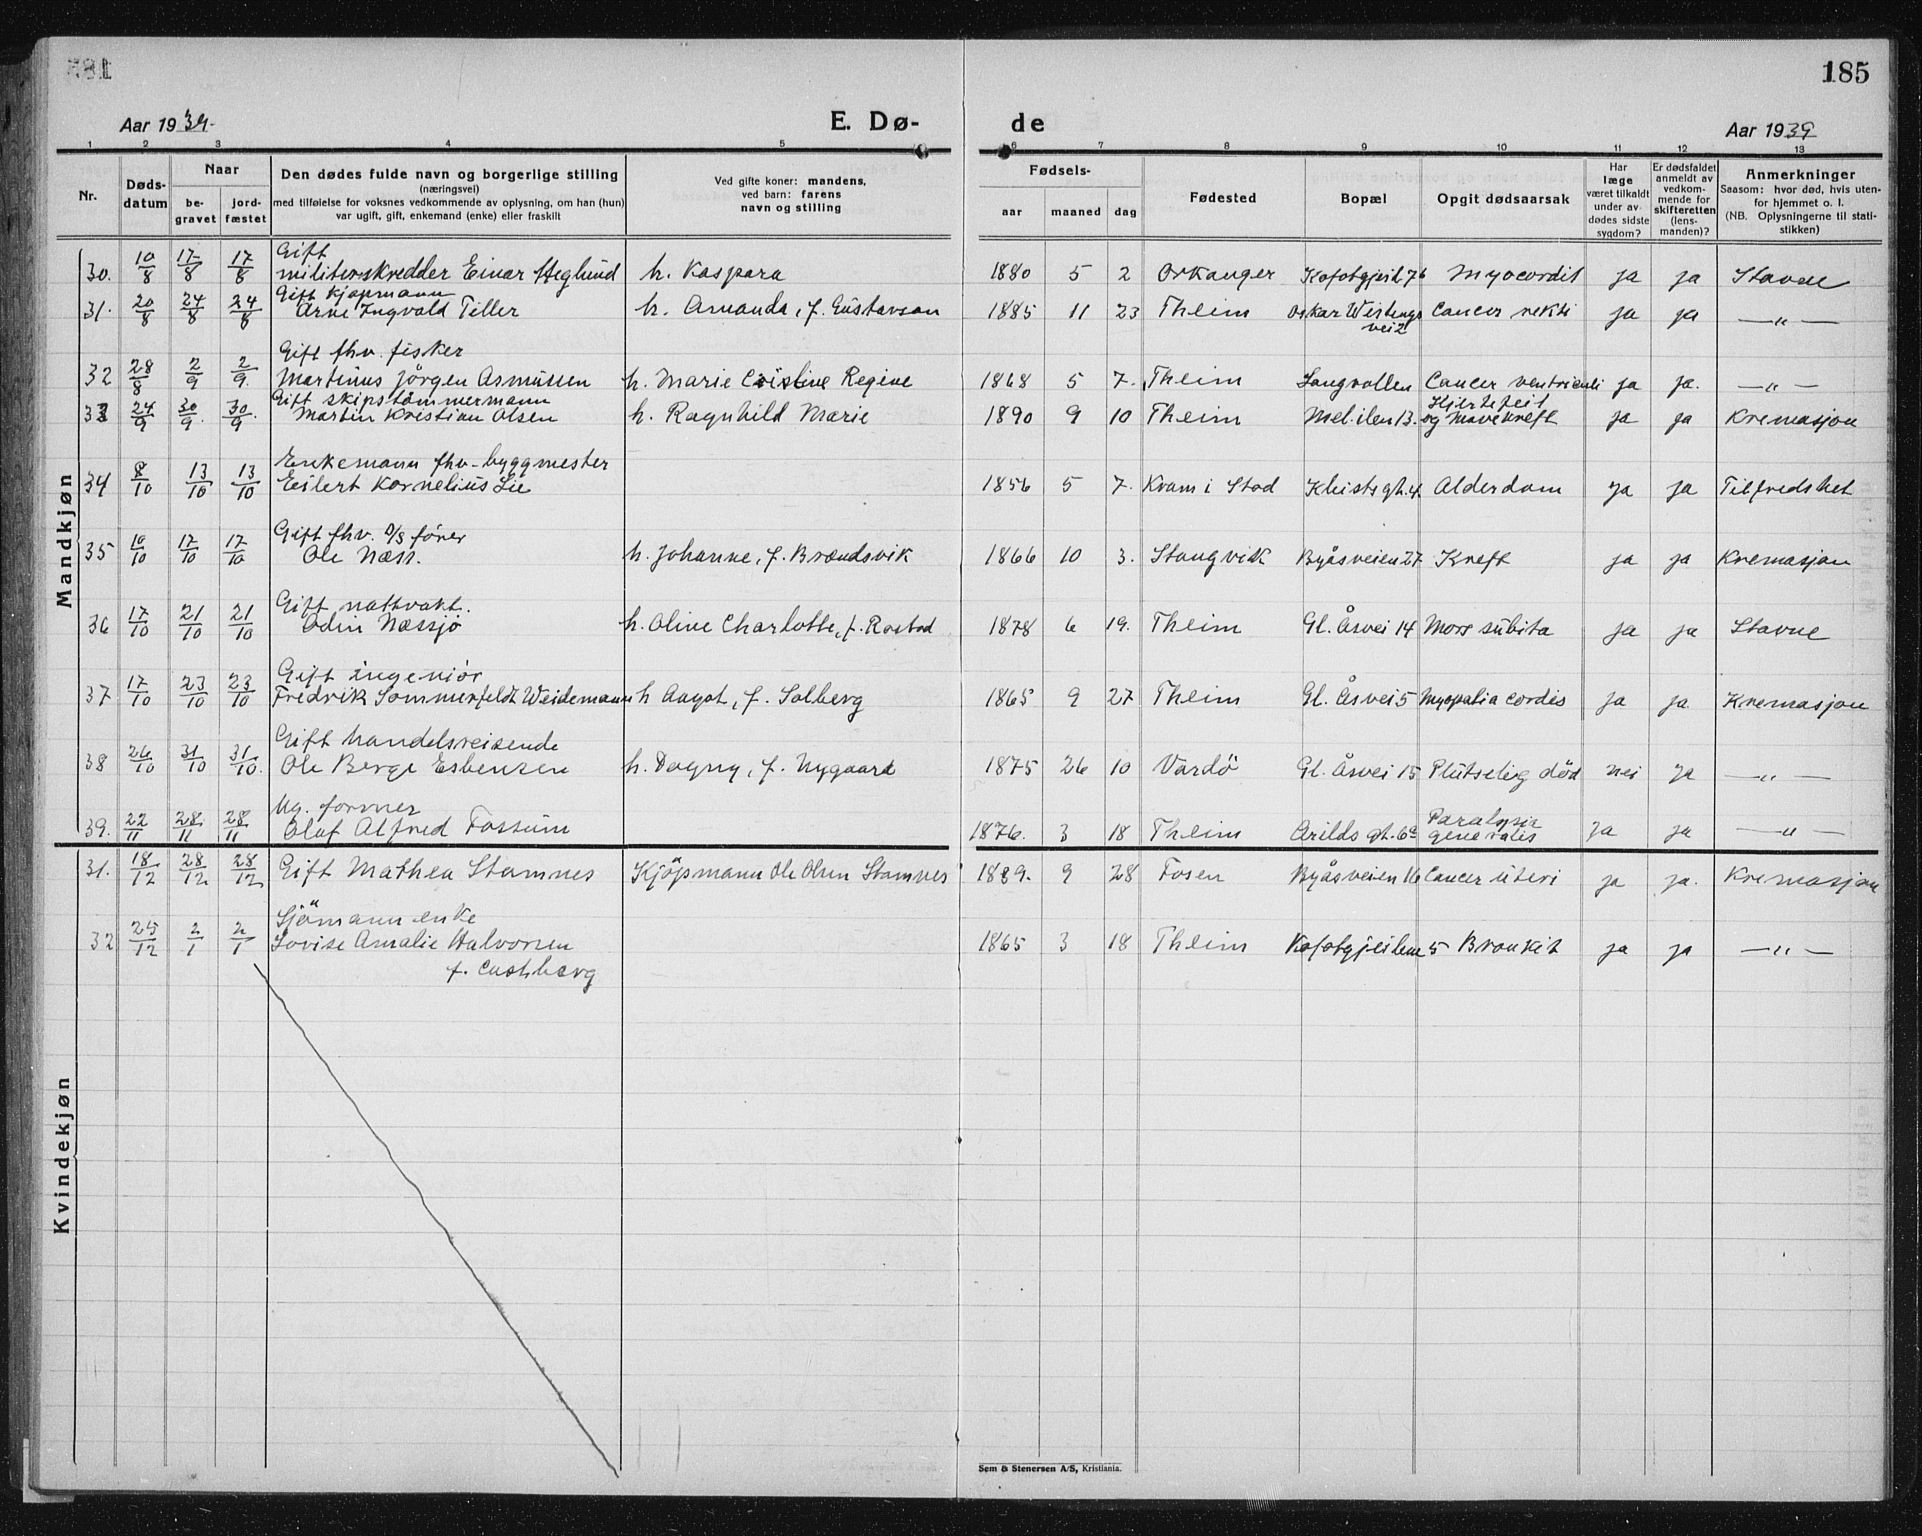 185
Aar 1939.
E. Dø-
de
Aar 1939
1 2 3 4 5 6 7 8 9 10 11 12 13
Nr.
Døds-
datum
Naar
be-
gravet
jord-
fæstet
Den dødes fulde navn og borgerlige stilling
(næringsvei)
med tilføielse for voksnes vedkommende av oplysning, om han (hun)
var ugift, gift, enkemand (enke) eller fraskilt
Ved gifte koner: mandens,
ved barn: farens
navn og stilling
Fødsels-
aar
maaned
dag
Fødested
Bopæl
Opgit dødsaarsak
Har
læge
været tilkaldt
under av-
dødes sidste
sygdom?
Er dødsfaldet
anmeldt av
vedkom-
mende for
skifteretten
(lens-
manden)?
Anmerkninger
Saasom: hvor død, hvis uten-
for hjemmet o. l.
(NB. Oplysningerne til stati-
stikken)
Mandkjøn
Gift
30. 10/8 17/8 17/8 militærskredder Einar Heglund h. Kaspara 1880 5 2 Orkanger 76 Myocordit ja ja Stavne
Gift kjøpmann
31. 20/8 24/8 24/8 Arne Ingvald Tiller h. Amanda, f. Gustavson 1885 11 23 Theim Oskar Wistings Cancer rekti ja ja —„—
vei 2
Gift fhv. fisker
32 28/8 2/9 2/9. Martinus Jørgen Asmussen h. Marie Cristine Regine 1868 5 7. Theim Langvollen Cancer ventriculi ja ja. —„—
Gift skipstømmermann Hjertefeil
33 24/9 30/9. 30/9. Martin Kristian Olsen h. Ragnhild Marie 1890 9 10 Theim Mel.ilen 13. og Mavekreft ja ja Kremasjon
Enkemann fhv. byggmester
34 8/10 13/10 13/10 Eilert Kornelius Lie 1856 5 7. Kvam i Stod Kleists gt. 4 Alderdom ja ja Tilfredshet
Gift fhv. D/S fører
35 10/10 17/10 17/10 Ole Næss. h. Johanne, f. Brandsvik 1866 10 3. Stangvik Byåsveien 27 Kreft ja ja Kremasjon
Gift nattvakt.
36 17/10 21/10 21/10 Odin Næssjø h. Olive Charlotte, f. Rostad 1878 6 19. Theim Gl. Åsvei 14 Mors subita ja ja Stavne
Gift ingeniør
37 17/10 23/10 23/10 Fredrik Sommerfeldt Weidemann h Aagot, f. Solberg 1865 9 27 Theim Gl. Åsvei 5 Myopatia cordis ja ja. Kremasjon
Gift handelsreisende
38 26/10 31/10 31/10. Ole Berge Esbensen h. Dagny, f. Nygaard 1875 26 10 Vardø Gl. Åsvei 15 Plutselig død nei ja —„—
Ug. former Paralysis
39. 22/11 28/11 28/11 Olaf Alfred Fossum 1876. 3 18 Theim Arilds gt. 6a generalis ja ja —„—
Kvindekjøn
31. 18/12 28/12 28/12 Gift Mathea Stamnes Kjøpmann Ole Olsen Stamnes 1889. 9 28 Fosen Byåsveien 16 Cancer uteri ja ja. Kremasjon
Sjømann enke
32 25/12 2/1 2/1 Lovise Amalie Halvorsen 1865 3 18 Theim 5 Bronkit ja ja —„—
f. Custberg
Sem & Stenersen A/S, Kristiania.